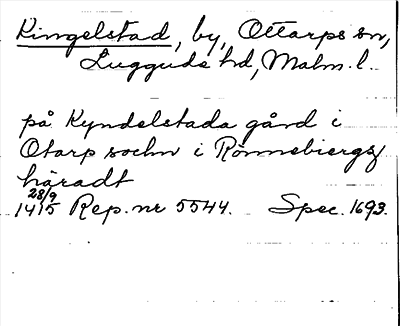 Kingelstad, by, Ottarps sn,
Lugguds hd, Malm. l.
på Kyndelstada gård i
Otarp sochn i Rönnebiergz
häradt
28/9
1415 Rep. nr 5544. Spec. 1693.